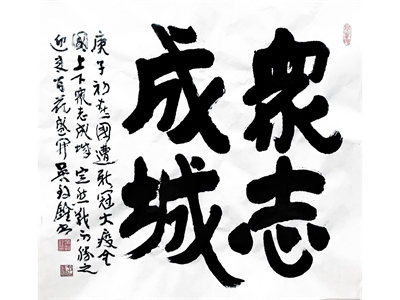 衆志
成城
庚子初春國遭新冠大疫全
國上下衆志成城定然戰而勝之
迎來百花盛開吴書